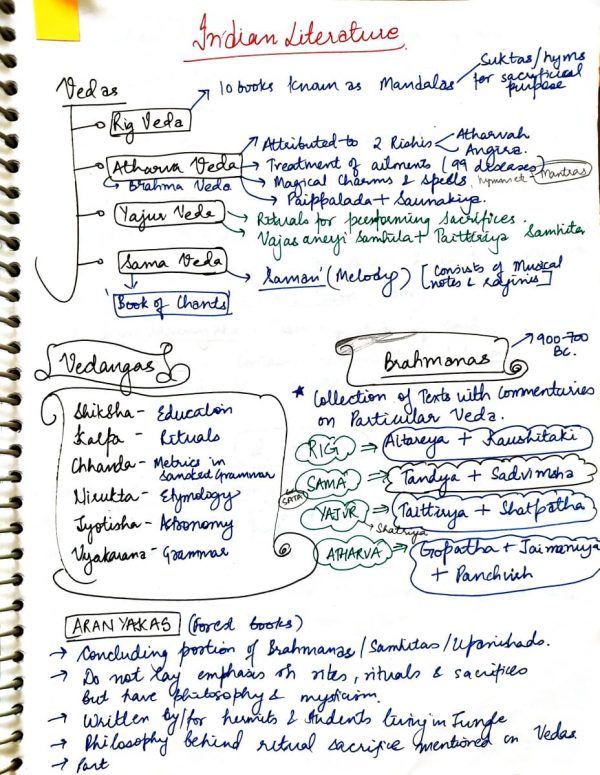 Indian Literature
Vedas
Rig Veda → 10 books known as Mandalas
Suktas/hyms
for sacrificial
purpose
Atharva Veda
Brahma Veda
→ Attributed to 2 Rishis
Atharvah
Angira
→ Treatment of ailments (99 diseases)
→ Magical Charms & Spells, - Mantras
→ Paippalada + Saunakiya
Yajur Veda → Rituals for performing sacrifices.
→ Vajasaneyi Samhita + Taittiriya Samhita
Sama Veda → 'Saman' (Melody) [Consists of Musical
notes & raginis]
'Book of Chants'
Vedangas
Shiksha - Education
Kalpa - Rituals
Chhanda - Metrics in
Sanskrit Grammar
Nirukta - Etymology
Jyotisha - Astronomy
Vyakarana - Grammar
Brahmanas → 900-700
BC.
* Collection of Texts with Commentaries
on Particular Veda.
RIG ⇒ Aitareya + Kaushitaki
SAMA ⇒ Tandya + Sadvimsha
SATAP
YAJUR ⇒ Taittiriya + Shatpatha
→ Shatriya
ATHARVA ⇒ Gopatha + Jaiminiya
+ Panchvish
ARANYAKAS (Forest books)
→ Concluding portion of Brahmanas/Samhitas/Upanishads.
→ Do not lay emphasis on rites, rituals & sacrifices
but have philosophy & mysticism.
→ Written by/for hermits & students living in Jungle
→ Philosophy behind ritual sacrifice mentioned in Vedas
→ Part